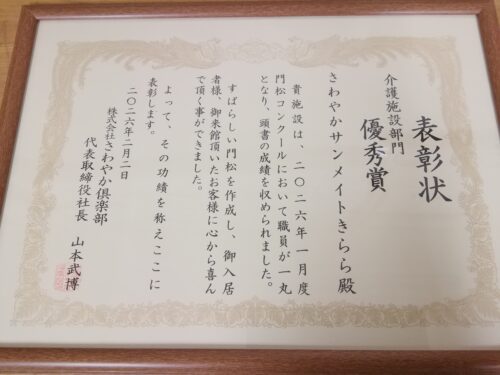 表彰状
介護施設部門
優秀賞
さわやかサンメイトきらら殿
貴施設は、二〇二六年一月度
門松コンクールにおいて職員が一丸
となり、頭書の成績を収められました。
すばらしい門松を作成し、御入居
者様、御来館頂いたお客様に心から喜ん
で頂く事ができました。
よって、その功績を称えここに
表彰します。
二〇二六年二月二日
株式会社さわやか倶楽部
代表取締役社長　山本武博